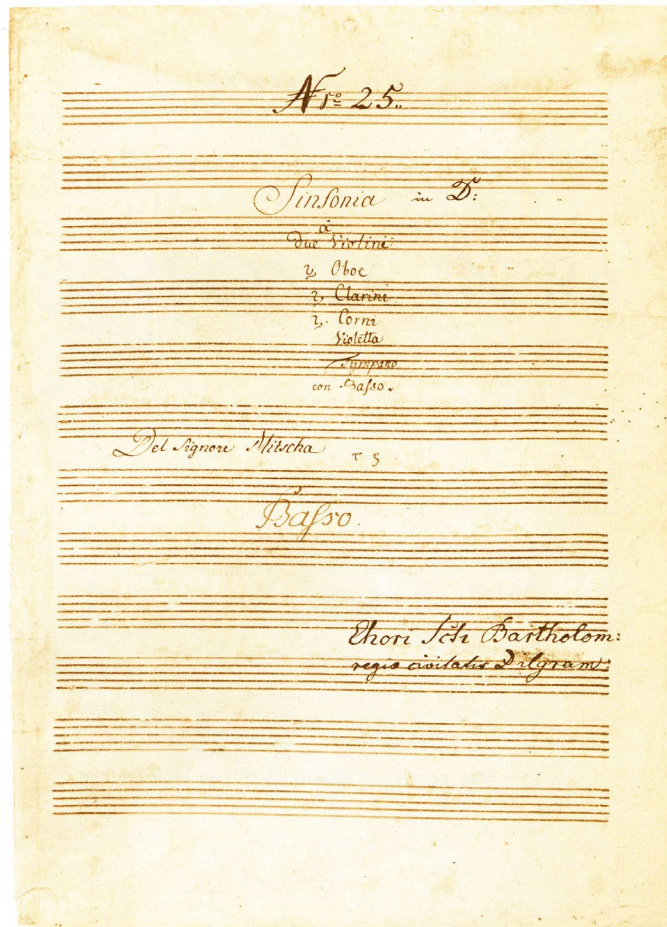 Nro 25.
Sinfonia in D:
à
due Violini
2 Oboe
2 Clarini
2. Corni
Violetta
Tympano
con Basso.
Del Signore Mitscha
Basso.
Chori Scti Bartholom:
regiæ civitatis Pilgram: